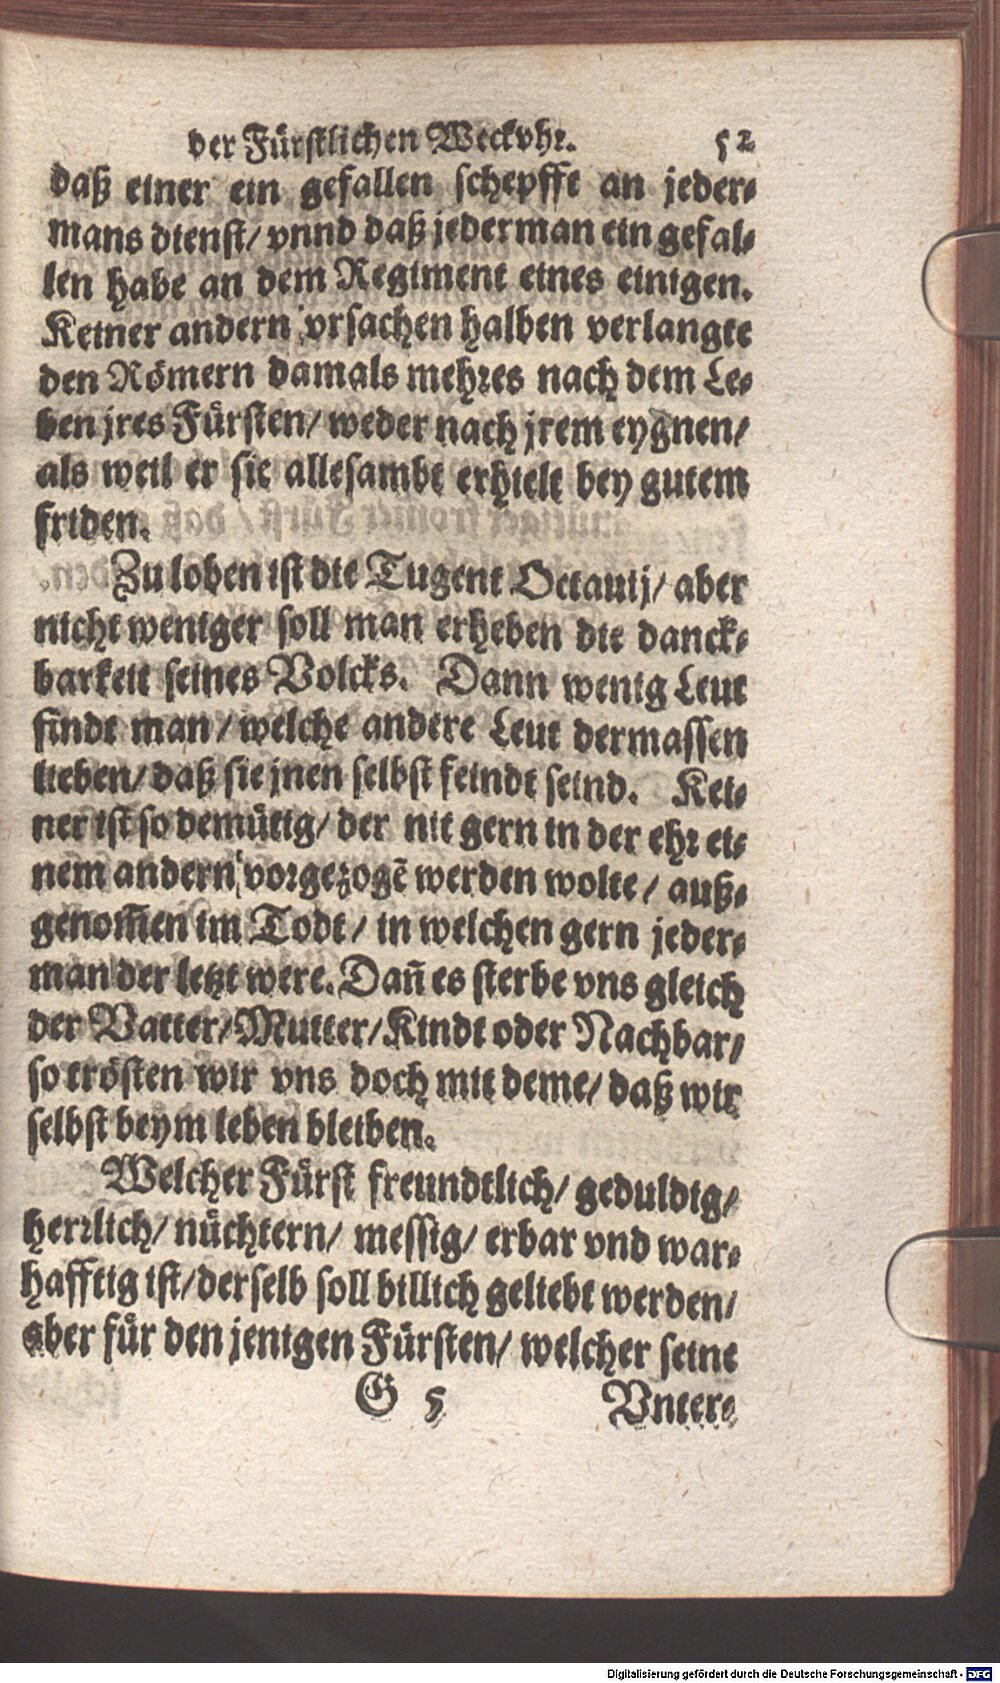 der Fürstlichen Weckvhr. 52
daß einer ein gefallen schepffe an jeder⸗
mans dienst/ vnnd daß jederman ein gefal⸗
len habe an dem Regiment eines einigen.
Keiner andern vrsachen halben verlangte
den Römern damals mehres nach dem Le⸗
ben jres Fürsten/ weder nach jrem eygnen/
als weil er sie allesambt erhielt bey gutem
friden.
Zu loben ist die Tugent Octauij/ aber
nicht weniger soll man erheben die danck⸗
barkeit seines Volcks. Dann wenig Leut
findt man/ welche andere Leut dermassen
lieben/ daß sie jnen selbst feindt seind. Kei⸗
ner ist so demütig/ der nit gern in der ehr ei⸗
nem andern vorgezogẽ werden wolte/ auß⸗
genom̃en im Todt/ in welchen gern jeder⸗
man der letzt were. Dañ es sterbe vns gleich
der Vatter/ Mutter/ Kindt oder Nachbar/
so trösten wir vns doch mit deme/ daß wir
selbst beym leben bleiben.
Welcher Fürst freundtlich/ geduldig/
herrlich/ nüchtern/ messig/ erbar vnd war⸗
hafftig ist/ derselb soll billich geliebt werden/
aber für den jenigen Fürsten/ welcher seine
G 5 Vnter⸗
Digitalisierung gefördert durch die Deutsche Forschungsgemeinschaft - DFG